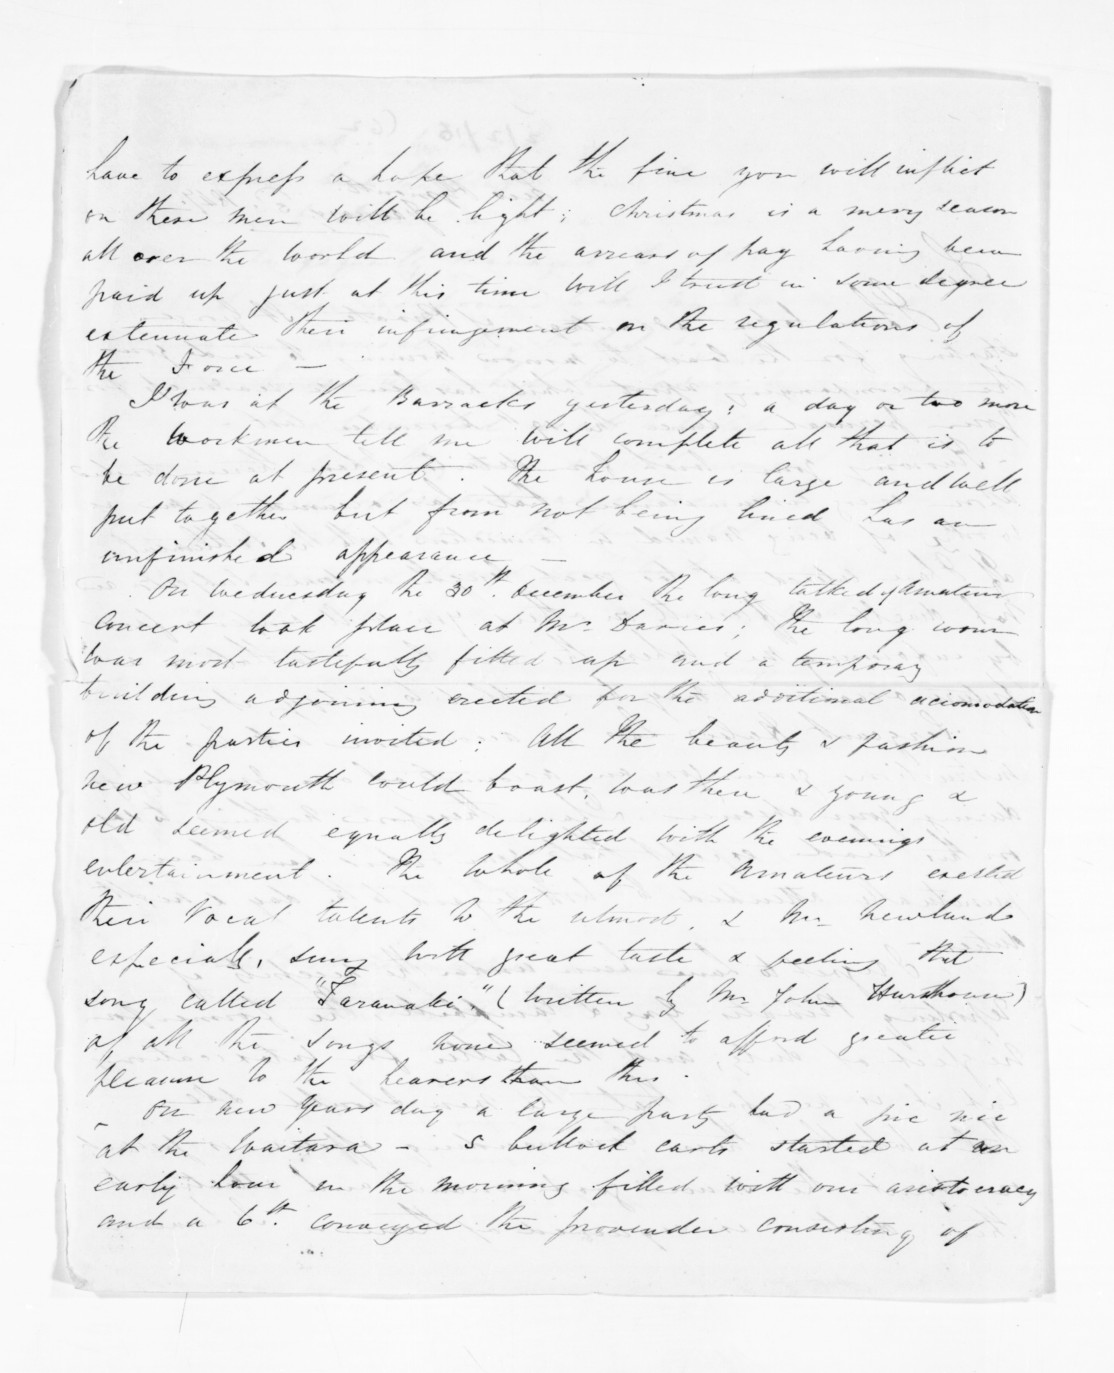 have to express a hope that the fine you will inflict
on these men will be light; Christmas is a merry season
all over the world and the arrears of pay having been
paid up just at this time will I trust in some degree
extenuate their infringement on the regulations of
the Force —
I was at the Barracks yesterday; a day or two more
the workmen tell me will complete all that is to
be done at present. The house is large and well
put together but from not being lined has an
unfinished appearance —
On Wednesday the 30th. December the long talked of Amateur
Concert took place at Mr. Davies; the long room
was most tastefully fitted up and a temporary
building adjoining erected for the additional accomodation
of the parties invited; All the beauty & fashion
new Plymouth could boast, was there & young &
old seemed equally delighted with the evenings
entertainment. The whole of the Amateurs exerted
their vocal talents to the utmost, & Mr. Newland
especially, sung with great taste & feeling that
song called "Taranaki." (written by Mr John Hursthouse)
of all the songs none seemed to afford greater
pleasure to the hearers than this.
On new Years day a large party had a pic nic
at the Waitara — 5 bullock carts started at an
early hour in the morning filled with our aristocracy
and a 6th. conveyed the provender consisting of